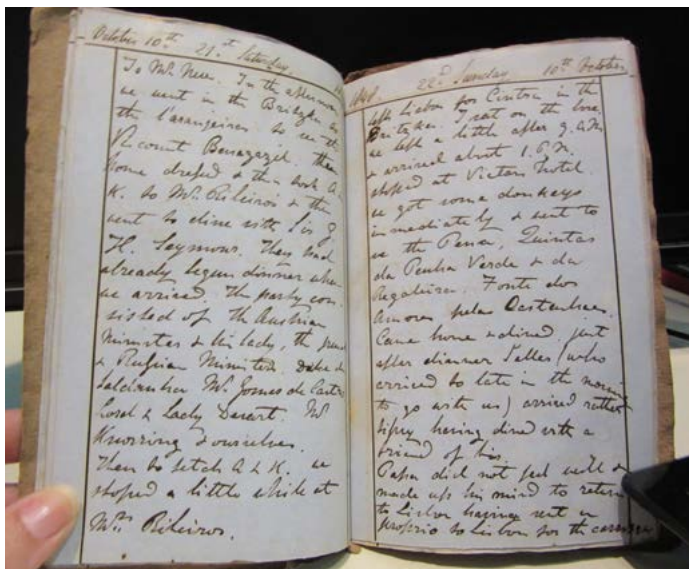 October 10th 21st Saturday.
To Mr. New. In the afternoon
we went in the Britzka to
the Laranjeiras to see the
Viscount Benagazil. then
home dressed & then took A &
K. to Mrs. Ribeiros & then
went to dine with Sir G.
H. Seymour. They had
already begun dinner when
we arrived. The party con-
sisted of the Austrian
Minister & his lady, the
& Russian Minister. Duke de
Saldanha Mr. Gomes de Castro
Lord & Lady Desart. Mr.
Knorring & ourselves.
Then to fetch A & K. we
stoped a little while at
Mrs. Ribeiros.
1848 22d Sunday 10th October
left Lisbon for Cintra in the
Britzka. I sat on the box,
we left a little after 9.A.M.
& arrived about 1.P.M.
stoped at Victors Hotel.
we got some donkeys
immediately & went to
see the Pena, Quintas
da Penha Verde & da
Regaleira. Fonte dos
Amores pelos Castanhaes.
Came home & dined. just
after dinner Seller (who
arrived to late in the morning
to go with us) arrived rather
tipsy having dined with a
friend of his.
Papa did not feel well &
made up his mind to return
to Lisbon having sent a
proprio to Lisbon for the carriage